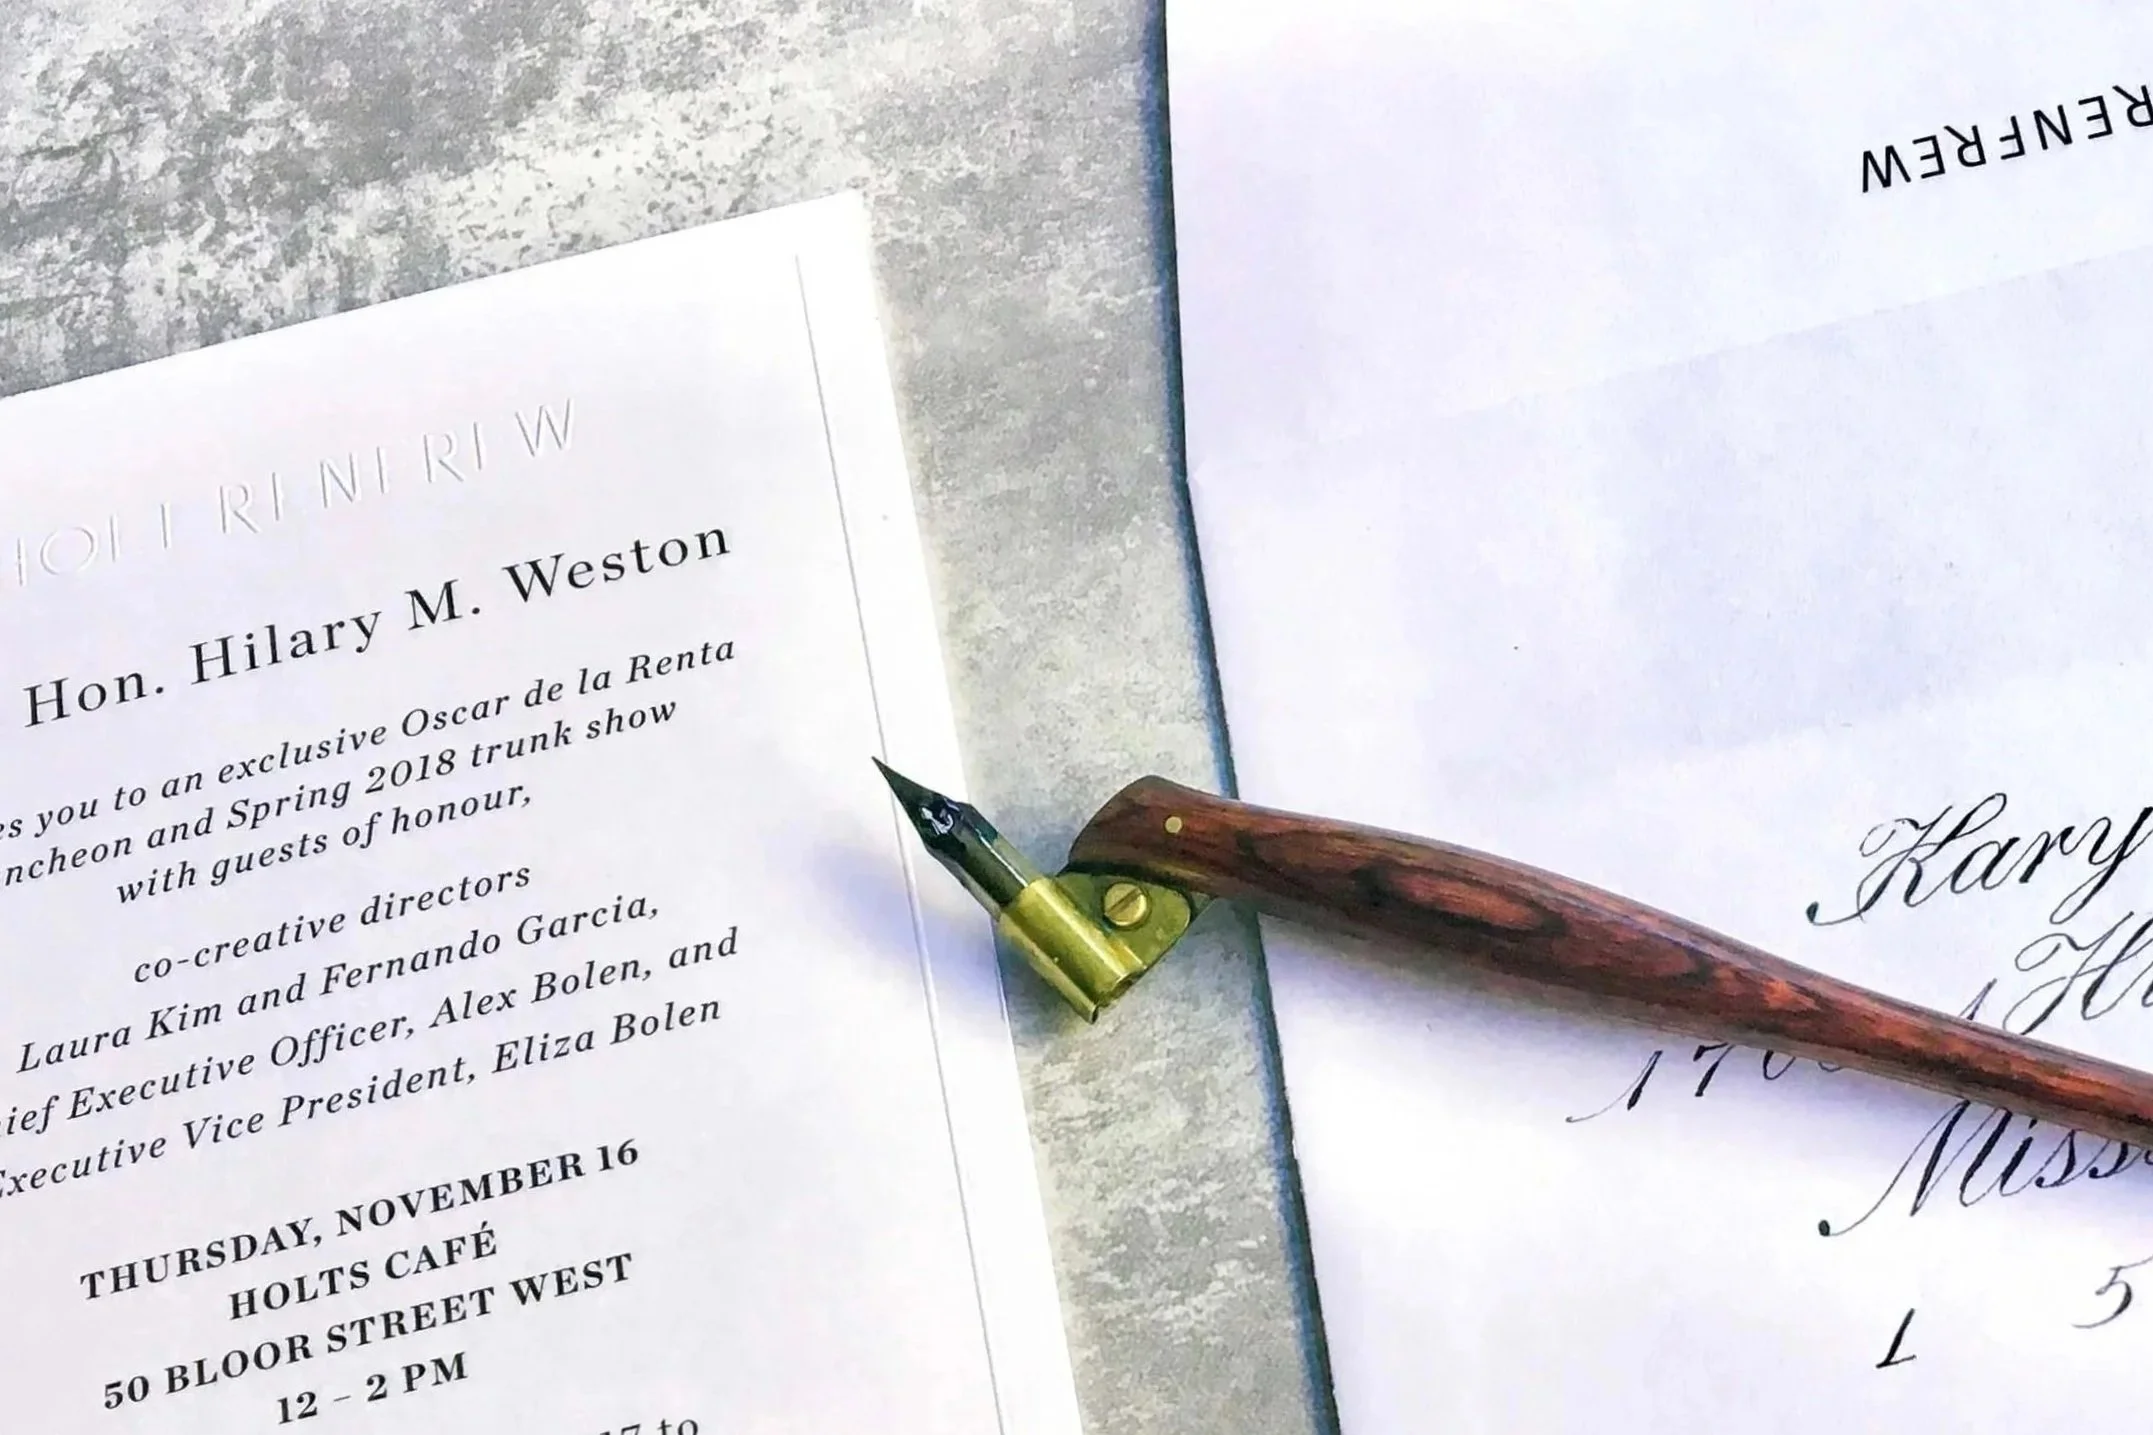 HOLT RENFREW
Hon. Hilary M. Weston
you to an exclusive Oscar de la Renta
and Spring 2018 trunk show
with guests of honour,
co-creative directors
Laura Kim and Fernando Garcia,
Executive Officer, Alex Bolen, and
Executive Vice President, Eliza Bolen
THURSDAY, NOVEMBER 16
HOLTS CAFÉ
50 BLOOR STREET WEST
12 – 2 PM
to
RENFREW
Kary
L 5